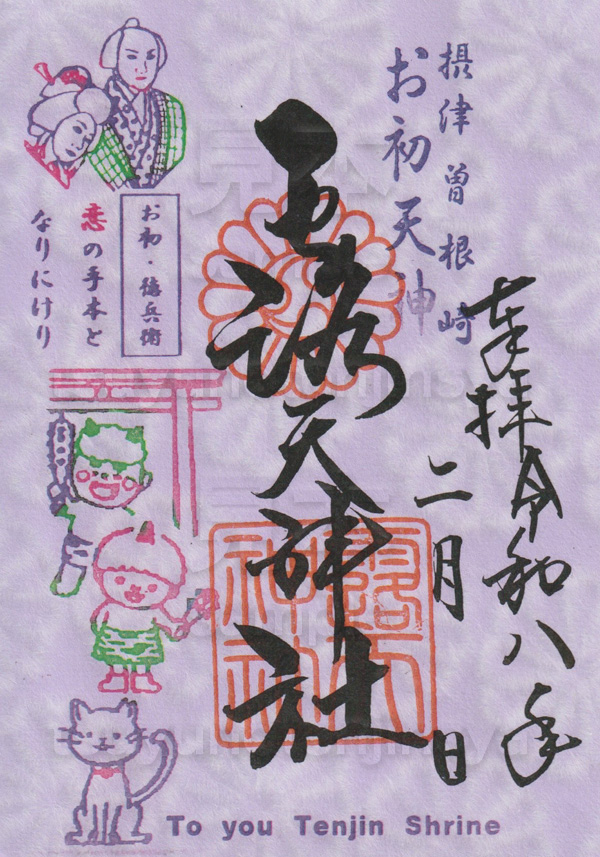 奉拝 令和八年
二月 日
摂津曽根崎
お初天神
露天神社
露天
神社
お初・徳兵衛
恋の手本と
なりにけり
To you Tenjin Shrine
見本